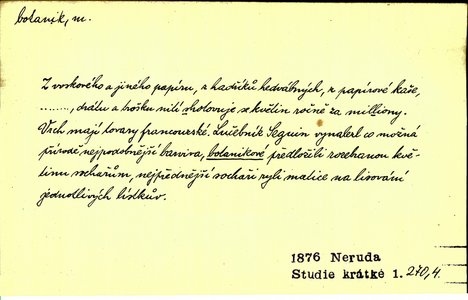 botanik, m.
Z voskového a jiného papíru, z hadříků hedvábných, z papírové kaše,
........, drátu a trošku nití shotovuje se květin ročně za milliony.
Vrch mají tovary francouzské. Lučebník Seguin vynalezl co možná
přírodě nejpodobnější barviva, botanikové předložili rozebranou kvě-
tinu sochařům, nejpřednější sochaři ryli matice na lisování
jednotlivých lístkův.
1876 Neruda
Studie krátké 1. 270,4.